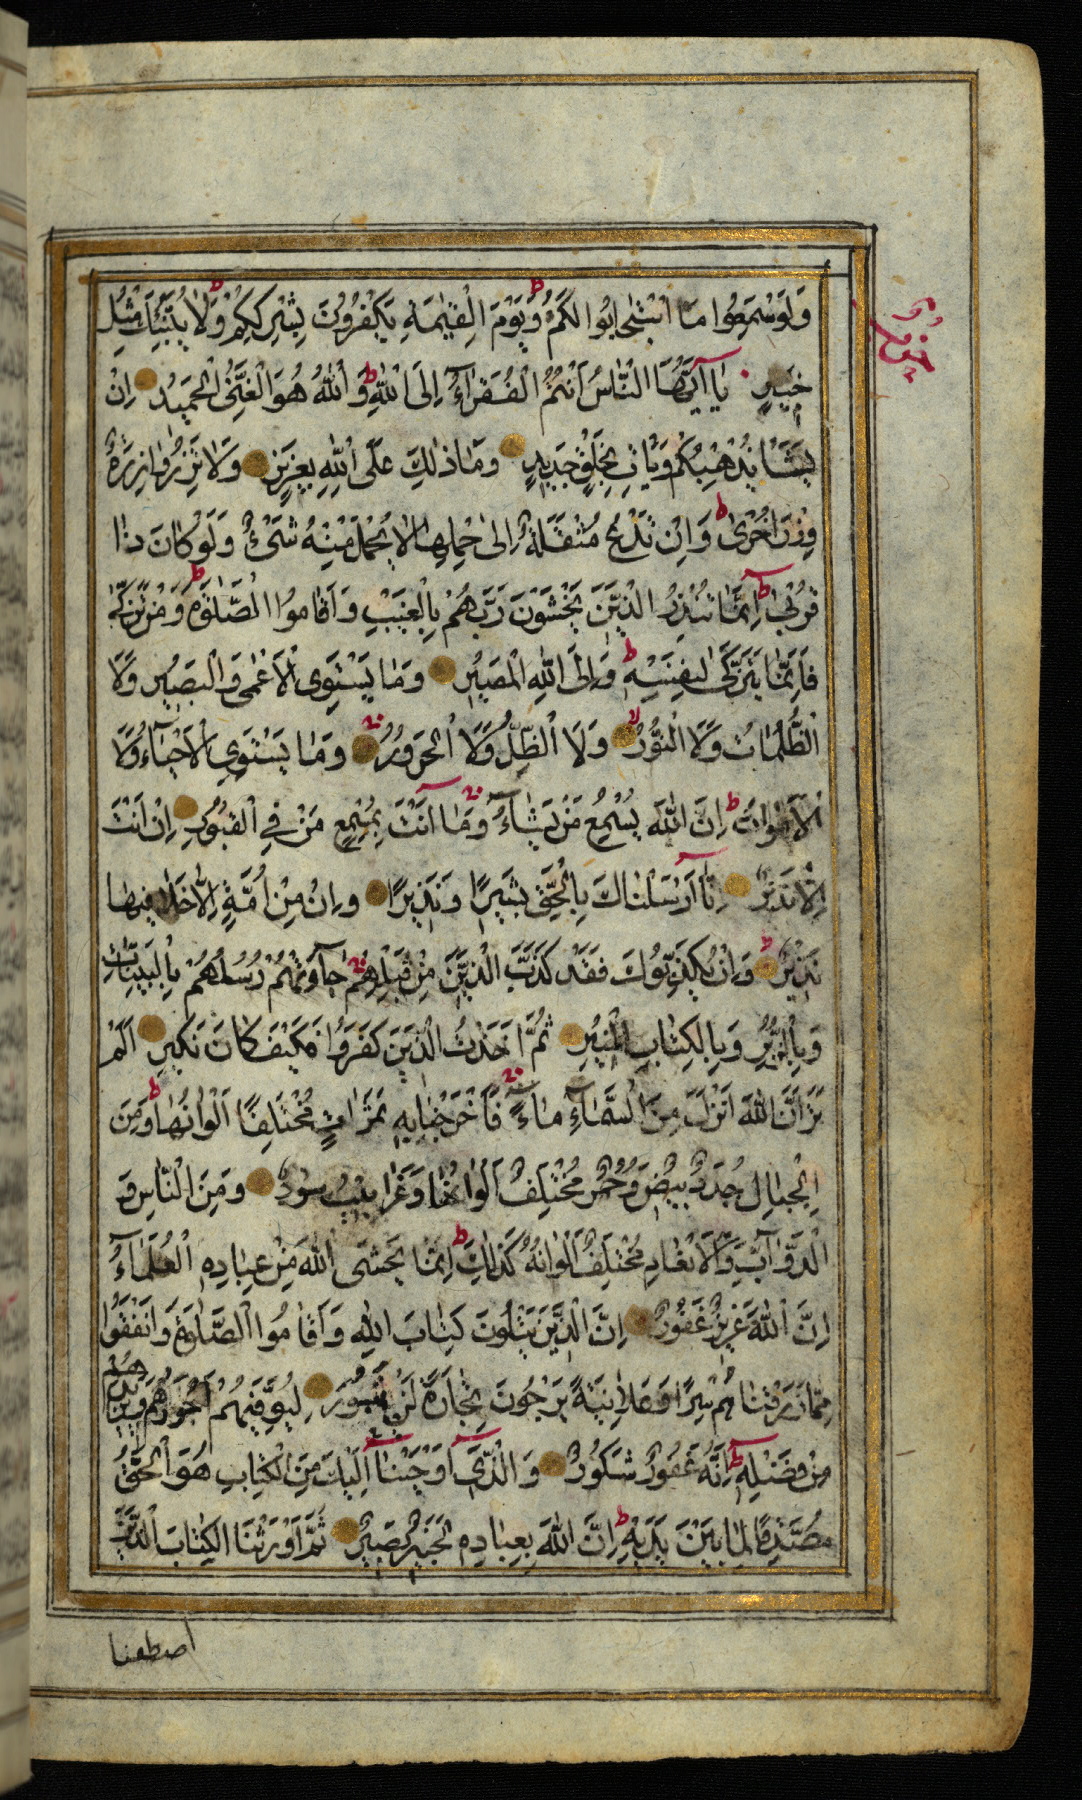 وَلَوْ سَمِعُوا مَا اسْتَجَابُوا لَكُمْ ط وَيَوْمَ الْقِيٰمَةِ يَكْفُرُونَ بِشِرْكِكُمْ ط وَلَا يُنَبِّئُكَ مِثْلُ
خَبِيرٍ يَا أَيُّهَا النَّاسُ أَنْتُمُ الْفُقَرَاءُ إِلَى اللّٰهِ ط وَاللّٰهُ هُوَ الْغَنِيُّ الْحَمِيدُ إِنْ
يَشَأْ يُذْهِبْكُمْ وَيَأْتِ بِخَلْقٍ جَدِيدٍ وَمَا ذٰلِكَ عَلَى اللّٰهِ بِعَزِيزٍ وَلَا تَزِرُ وَازِرَةٌ
وِزْرَ أُخْرٰى ط وَإِنْ تَدْعُ مُثْقَلَةٌ إِلٰى حِمْلِهَا لَا يُحْمَلْ مِنْهُ شَيْءٌ وَلَوْ كَانَ ذَا
قُرْبٰى ط إِنَّمَا تُنْذِرُ الَّذِينَ يَخْشَوْنَ رَبَّهُمْ بِالْغَيْبِ وَأَقَامُوا الصَّلٰوةَ ط وَمَنْ تَزَكّٰى
فَإِنَّمَا يَتَزَكّٰى لِنَفْسِهِ ط وَإِلَى اللّٰهِ الْمَصِيرُ وَمَا يَسْتَوِي الْأَعْمٰى وَالْبَصِيرُ وَلَا
الظُّلُمَاتُ وَلَا النُّورُ لا وَلَا الظِّلُّ وَلَا الْحَرُورُ وَمَا يَسْتَوِي الْأَحْيَاءُ وَلَا
الْأَمْوَاتُ ط إِنَّ اللّٰهَ يُسْمِعُ مَنْ يَشَاءُ وَمَا أَنْتَ بِمُسْمِعٍ مَنْ فِي الْقُبُورِ إِنْ أَنْتَ
إِلَّا نَذِيرٌ إِنَّا أَرْسَلْنَاكَ بِالْحَقِّ بَشِيرًا وَنَذِيرًا وَإِنْ مِنْ أُمَّةٍ إِلَّا خَلَا فِيهَا
نَذِيرٌ ط وَإِنْ يُكَذِّبُوكَ فَقَدْ كَذَّبَ الَّذِينَ مِنْ قَبْلِهِمْ جَاءَتْهُمْ رُسُلُهُمْ بِالْبَيِّنَاتِ
وَبِالزُّبُرِ وَبِالْكِتَابِ الْمُنِيرِ ثُمَّ أَخَذْتُ الَّذِينَ كَفَرُوا فَكَيْفَ كَانَ نَكِيرِ أَلَمْ
تَرَ أَنَّ اللّٰهَ أَنْزَلَ مِنَ السَّمَاءِ مَاءً فَأَخْرَجْنَا بِهِ ثَمَرَاتٍ مُخْتَلِفًا أَلْوَانُهَا ط وَمِنَ
الْجِبَالِ جُدَدٌ بِيضٌ وَحُمْرٌ مُخْتَلِفٌ أَلْوَانُهَا وَغَرَابِيبُ سُودٌ وَمِنَ النَّاسِ وَ
الدَّوَابِّ وَالْأَنْعَامِ مُخْتَلِفٌ أَلْوَانُهُ كَذٰلِكَ ط إِنَّمَا يَخْشَى اللّٰهَ مِنْ عِبَادِهِ الْعُلَمَاءُ
إِنَّ اللّٰهَ عَزِيزٌ غَفُورٌ إِنَّ الَّذِينَ يَتْلُونَ كِتَابَ اللّٰهِ وَأَقَامُوا الصَّلٰوةَ وَأَنْفَقُوا
مِمَّا رَزَقْنَاهُمْ سِرًّا وَعَلَانِيَةً يَرْجُونَ تِجَارَةً لَنْ تَبُورَ لِيُوَفِّيَهُمْ أُجُورَهُمْ وَيَزِيدَهُمْ
مِنْ فَضْلِهِ ط إِنَّهُ غَفُورٌ شَكُورٌ وَالَّذِي أَوْحَيْنَا إِلَيْكَ مِنَ الْكِتَابِ هُوَ الْحَقُّ
مُصَدِّقًا لِمَا بَيْنَ يَدَيْهِ ط إِنَّ اللّٰهَ بِعِبَادِهِ لَخَبِيرٌ بَصِيرٌ ثُمَّ أَوْرَثْنَا الْكِتَابَ الَّذِينَ
اصطفينا